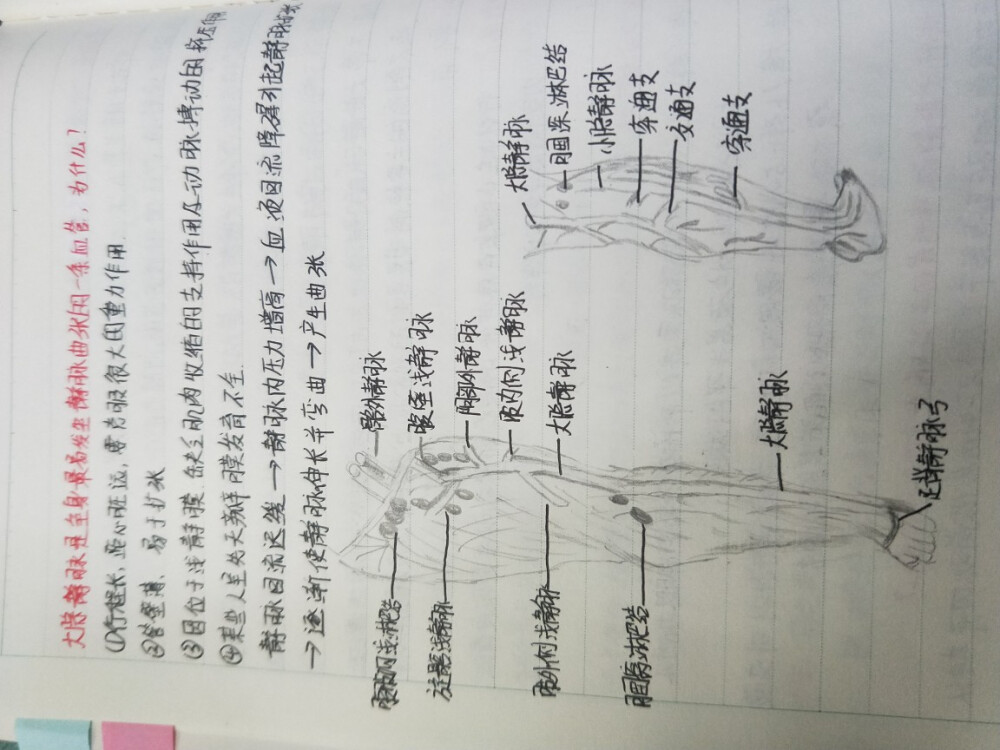 大隐静脉是全身最易发生静脉曲张的一条血管，为什么？
①行程长，距心脏远，要克服很大的重力作用.
②管壁薄、易于扩张
③因位于浅静膜 缺乏肌肉收缩的支持作用及动脉搏动的挤压作用
④某些人呈先天瓣膜发育不全.
静脉回流迟缓→静脉内压力增高→血液回流障碍引起静脉扩张
→逐渐使静脉伸长并弯曲→产生曲张
髂外静脉
腹壁浅静脉
阴部外静脉
股内侧浅静脉
大隐静脉
大隐静脉
足背静脉弓
腹股沟浅淋巴结
旋髂浅静脉
股外侧浅静脉
腘窝淋巴结
大隐静脉
腘深淋巴结
小隐静脉
穿通支
交通支
穿通支